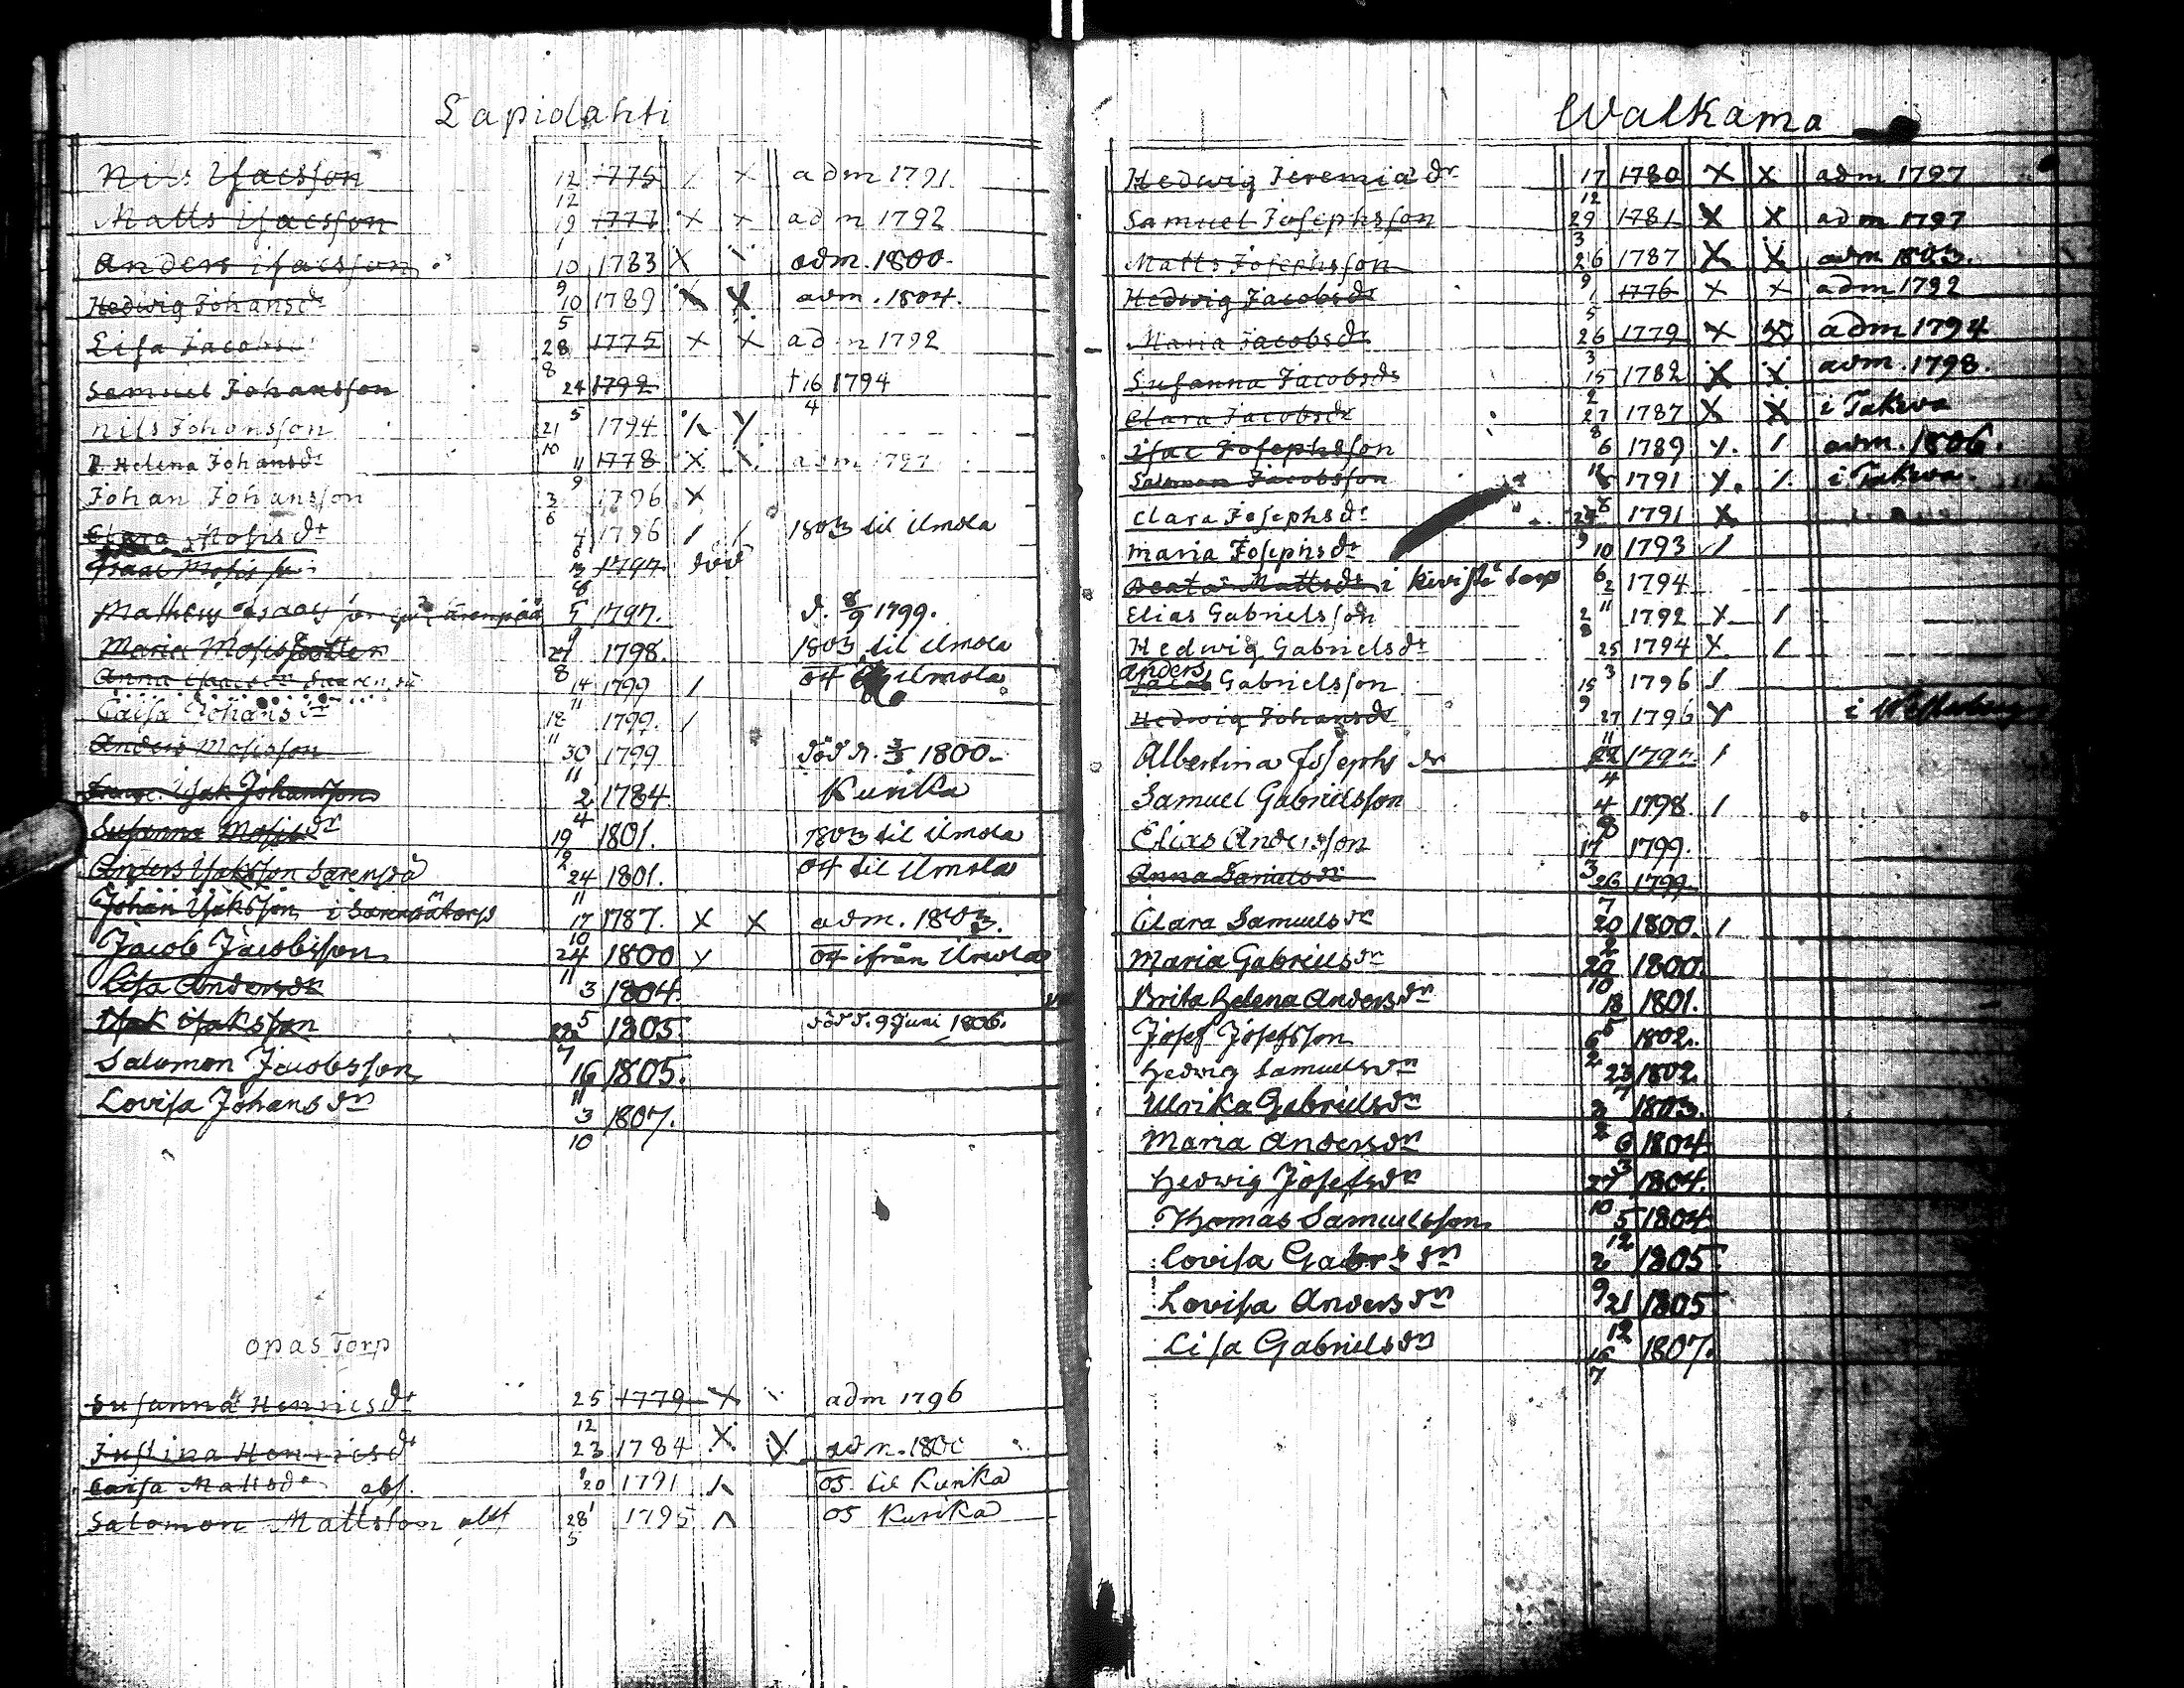 Lapiolahti
Nils Isacsson 12/12 1775 / x adm 1791.
Matts Isacsson 19/1 1777 x x adm 1792
Anders isacsson 10/9 1783 x adm. 1800
Hedwig Johansdr 10/5 1789 x x adm. 1804.
Lisa Jacobsdr 28/8 1775 x x adm 1792
Samuel Johansson 24/5 1792 †16/4 1794
Nils Johansson 21/10 1794
Helena Johansdr 11/9 1778 x x adm 1797
Johan Johansson 3/6 1796 x
Clara Mosisdr 4/6 1796 / / 1803 til ilmola
Isaac Mosis 1797 död
Matheus Isaacs 5 1797. d. 8/9 1799.
Maria Mosisdotter 27/8 1798. 1803 til ilmola
Anna Isaacsdr 14/11 1799 / 04 ilmola
Caisa Johansdr 12/11 1799. /
Anders Mosisson 30/11 1799 död d. 1800.
Isak Johansson 2/4 1784 Kurika
Susanna Mosisdr 19/2 1801. 1803 til ilmola
Anders Isaksson 24/11 1801. 04 til Ilmola
Johan Isaksson i 17/10 1787. x x adm. 1803.
Jacob Jacobsson 24/11 1800 04 ifrån Ilmola
Lisa Andersdr 3/5 1804.
Isak isaksson 22/7 1805. död d. 9 Juni 1806.
Salomon Jacobsson 16/11 1805.
Lovisa Johansdr 3/10 1807.
opas Torp
Susanna Henricsdr 25/12 1779 x adm 1796
Justina Henricsdr 23 1784 x x adm. 1800
Caisa Mattsdr abs. 20/1 1791 05 til Kurika
Salomon Mattsson abs 28/5 1795 05 Kurika
Walkama
Hedwig Jeremiædr 17/12 1780 x x adm 1797
Samuel Josephsson 29/3 1781 x x adm 1797
Matts Josephsson 26/9 1787 x x adm 1803.
Hedwig Jacobsdr 1/5 1776 x x adm 1792
Maria Jacobsdr 26/3 1779 x x adm 1794
Susanna Jacobsdr 15/2 1782 x x adm. 1798.
Clara Jacobsdr 27/8 1787 x x i Takwa
isac Josephsson 6/12 1789 / adm. 1806.
Salomon Jacobsson 1791 / i Takwa
Clara Josephsdr 1791 x
Maria Josephsdr 10/6 1793 /
Beata Mattsdr i torp 2/11 1794
Elias Gabrielsson 2/8 1792 x /
Hedwig Gabrielsdr 25/3 1794 x /
anders
Jacob Gabrielsson 15/9 1796 /
Hedwig Johansdr 27/11 1796 i
Albertina Josephsdr 1797 /
Samuel Gabrielsson 4/8 1798 /
Elias Andersson 17/3 1799.
Anna Danielsdr 26/7 1799.
Clara Samuelsdr 20/2 1800. /
Maria Gabrielsdr 20/10 1800.
Brita Helena Andersdr 18/5 1801.
Josef Josefsson 6/2 1802.
Hedwig Samuelsdr 23/7 1802.
Ulrika Gabrielsdr 1803.
Maria Andersdr 6/3 1804.
Hedwig Josefsdr 27/10 1804.
Thomas Samuelsson 5/12 1804
Lovisa Gabrsdr 2/9 1805.
Lovisa Andersdr 21/12 1805
Lisa Gabrielsdr 16/7 1807.